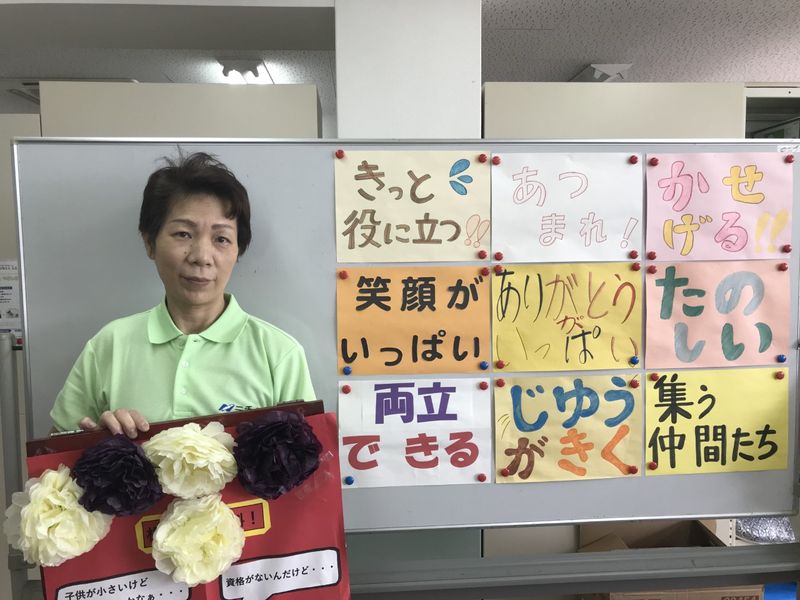 きっと
役に立つ!!
あつ
まれ！
かせ
げる!!
笑顔が
いっぱい
ありがとう
が
いっぱい
たの
しい
両立
できる
じゆう
がきく
集う
仲間たち
子供が小さいけど
かなぁ・・・
資格がないんだけど・・・